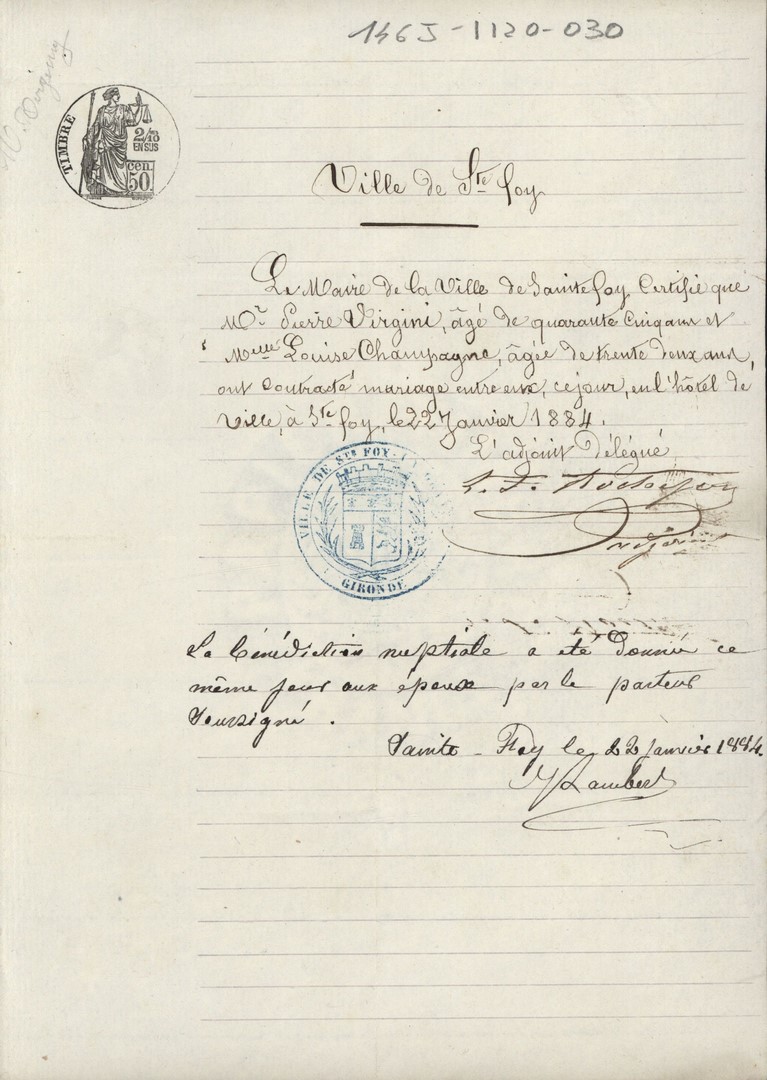 146J-1120-030
TIMBRE
2/10
EN SUS
cen.
50
Ville de Ste foy
Le Maire de la Ville de Sainte foy Certifie que
Mr. Pierre Virgini, âgé de quarante Cinq ans et
Melle Louise Champagne, âgée de trente deux ans,
ont Contracté mariage entre eux, ce jour, en l'hôtel de
Ville, à Ste foy, le 22 Janvier 1884.
L'adjoint Délégué
VILLE DE STE FOY-LA-GRANDE
GIRONDE
La bénédiction nuptiale a été donnée ce
même jour aux époux par le pasteur
soussigné.
Sainte-Foy le 22 janvier 1884.
Lambert